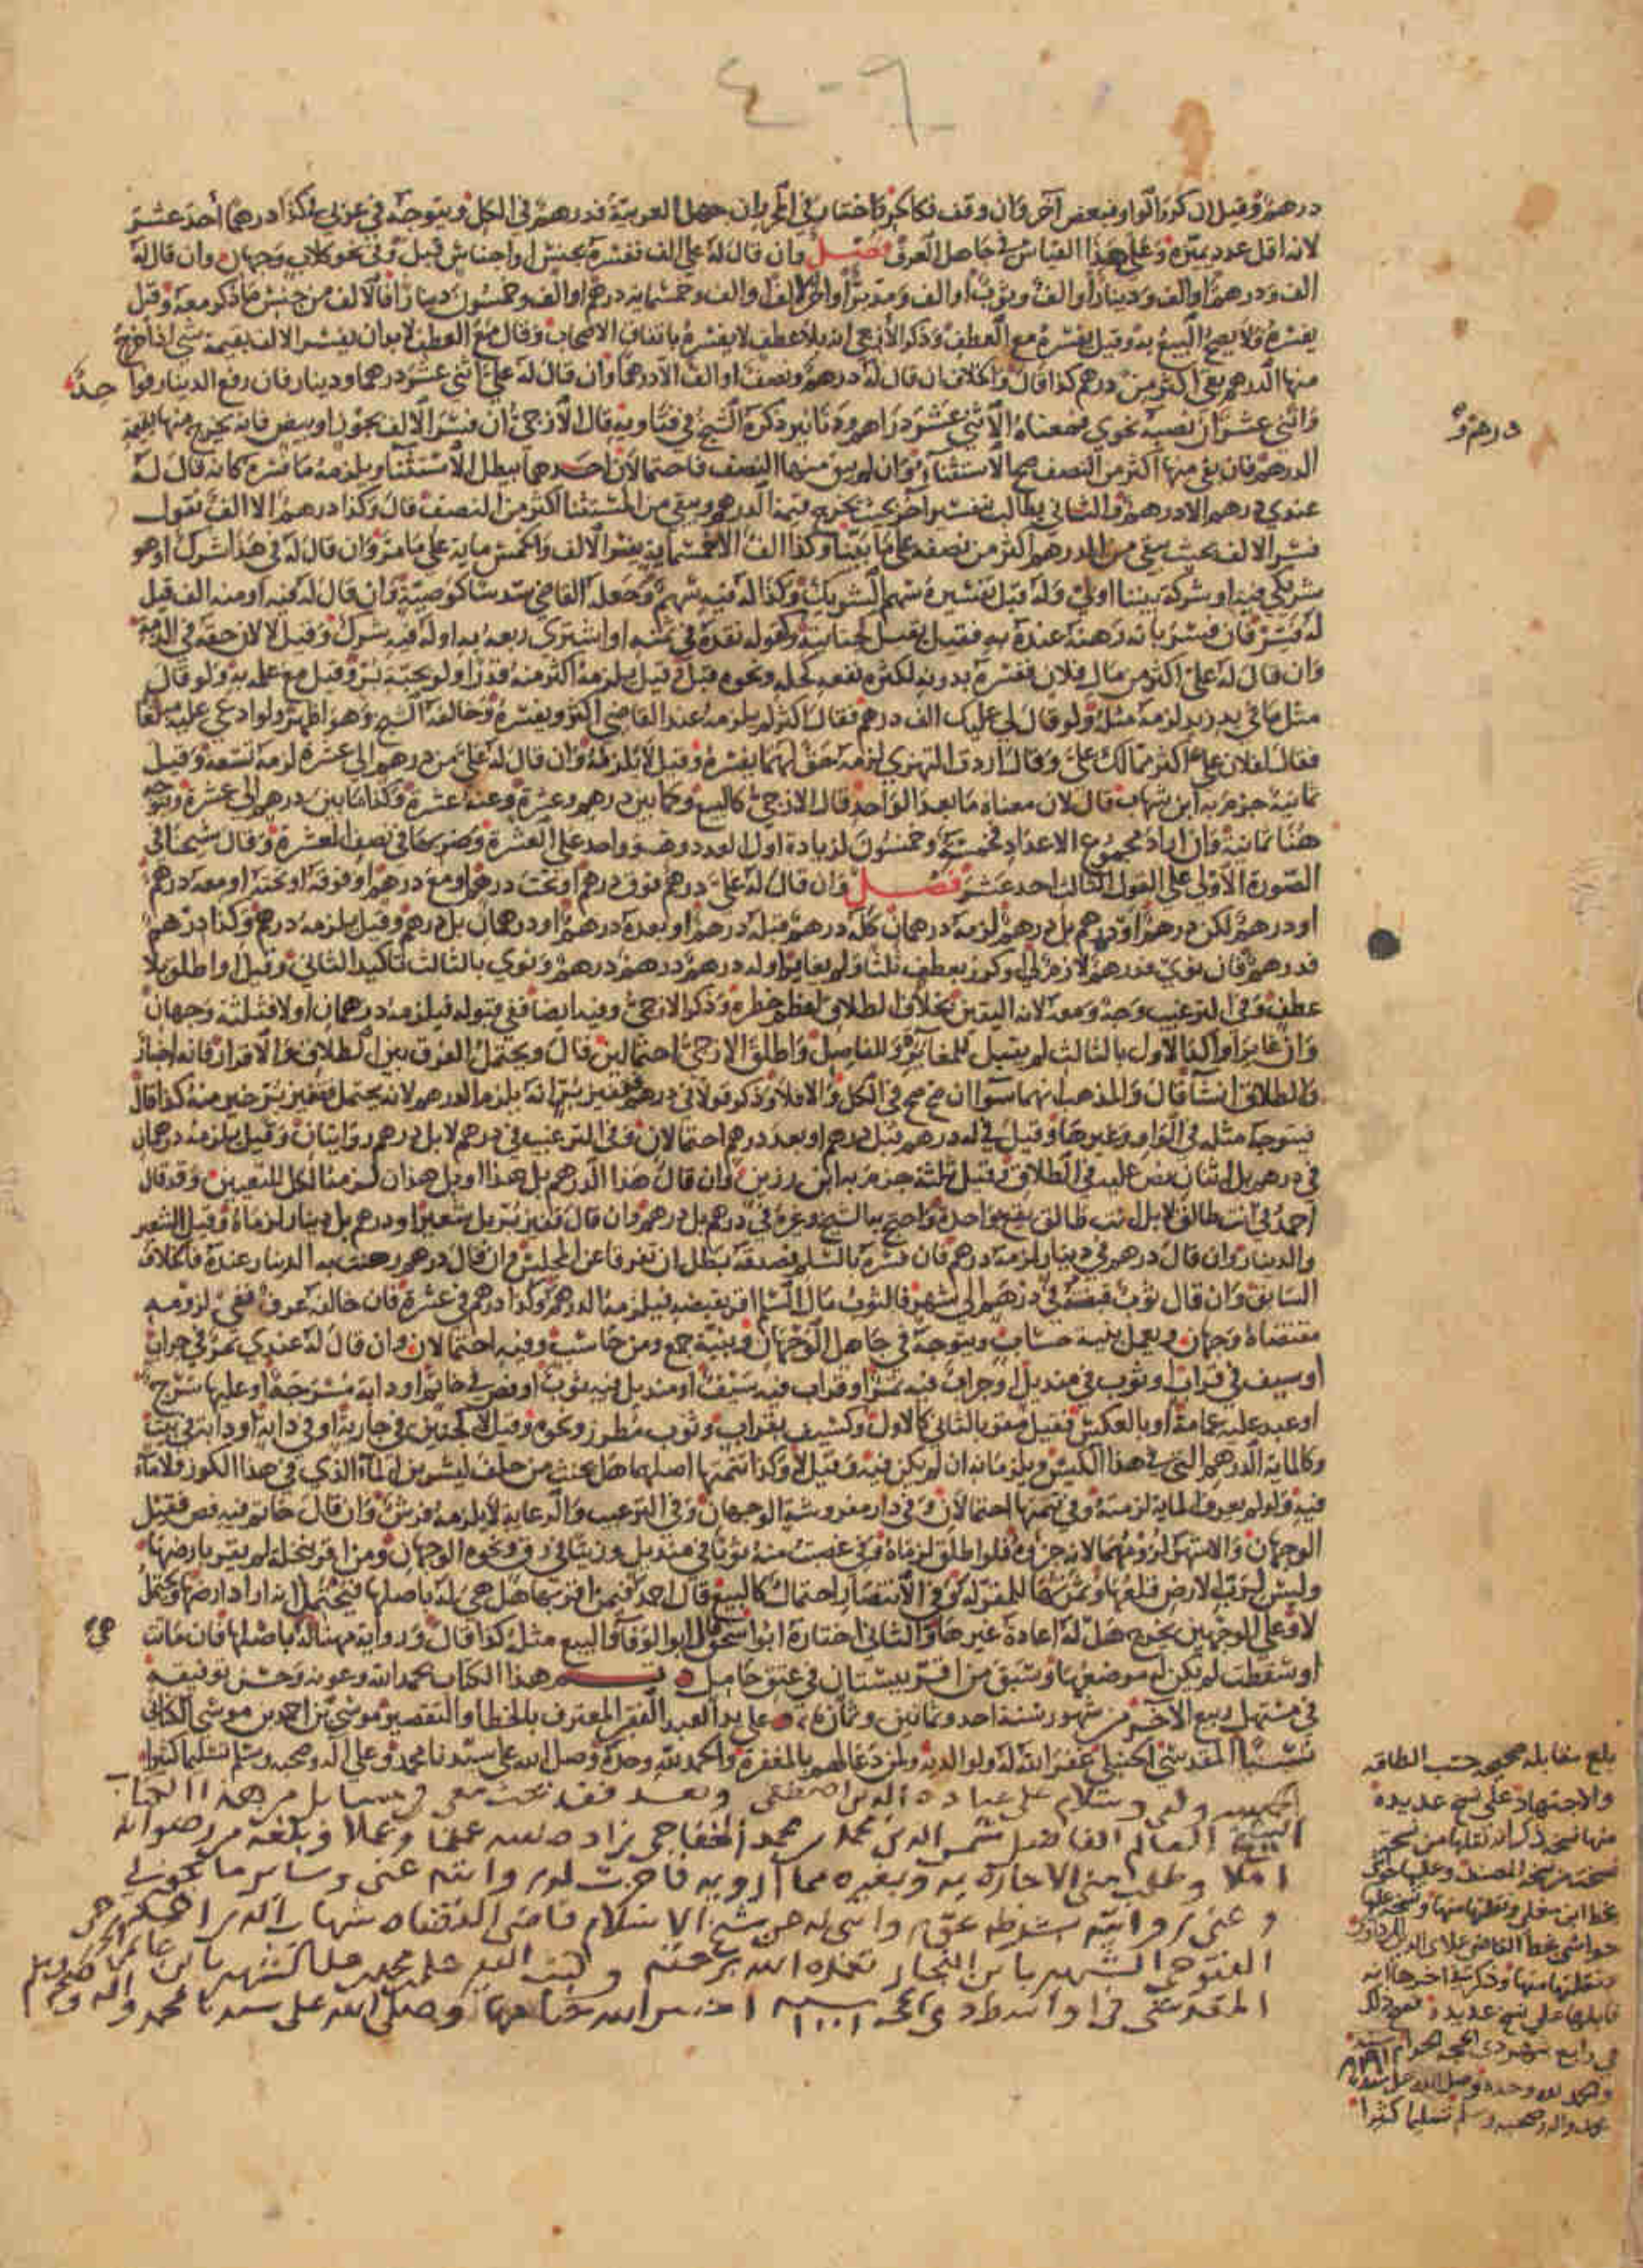 ٤ - ٩
درهم وقيل ان كرر الواو فبعض آخر وان وقف فكالجر واختار في المحرر ان جهل العربية فدرهم في الكل ويتوجه في عربي في كذا درهما أحد عشر
لانه اقل عدد يميزه وعلى هذا القياس في جاهل العرف فصل وان قال له علي الف ففسره بجنس او اجناس قبل وفي نحو كلاب وجهان وان قال له
الف ودرهم او الف ودينار او الف وثوب او الف ومدبر او اخر الالف او الف وخمسمائة درهم او الف وخمسون دينارا فالالف من جنس ما ذكر معه وقيل
يفسره ولا يصح البيع به وقيل يفسره مع العطف وذكر الأزجي انه بلا عطف لا يفسره باتفاق الاصحاب وقال مع العطف لا بد ان يفسر الالف بقيمة شي اذا خرج
منها الدرهم بقي اكثر من درهم كذا قال والخلاف ان قال له درهم ونصف او الف الا درهما وان قال له علي اثني عشر درهما ودينار فان رفع الدينار فواحد
واثني عشر وان نصبه نحوي فمعناه الاثني عشر دراهم ودنانير ذكره الشيخ في فتاويه قال الازجي ان فسر الالف بجوز او بيض فانه يخرج منها بقيمة
الدرهم فان بقي منها اكثر من النصف صح الاستثناء وان لم يبق منها النصف فاحتمالان احدهما يبطل الاستثنا ويلزمه ما فسره كانه قال له
عندي درهم الا درهم والثاني يطالب بتفسير آخر بحيث يخرج قيمة الدرهم ويبقى من المستثنا اكثر من النصف قال وكذا درهم الا الف فنقول
فسر الالف بحيث يبقى من الدرهم اكثر من نصفه على ما بينا وكذا الف الا خمسماية يفسر الالف والخمس ماية على ما مر وان قال له في هذا شرك او هو
شريكي فيه او شركة بيننا او لي وله قبل تفسيره سهم الشريك وكذا له فيه سهم وجعله القاضي سدسا كوصية وان قال له فيه او منه الف قيل
له فسر فان فسر بانه رهنه عنده به فقيل يقبل كجنايته وكقوله نقده في ثمنه او اشترى ربعه به او له فيه شرك وقيل لا لان حقه في الذمة
وان قال له علي اكثر من مال فلان ففسره بدونه لكثرة نفعه كحله ونحوه قبل وقيل يلزمه اكثر منه قدرا ولو بحبة بر وقيل مع علمه به ولو قال
مثل ما في يد زيد لزمه مثله ولو قال لي عليك الف درهم فقال اكثر لم يلزمه عند القاضي اكثر ويفسره وخالفه الشيخ وهو اظهر ولو ادعي عليه مبلغا
فقال لفلان علي اكثر مما لك علي وقال اردت التهزي لزمه حق لهما يفسره وقيل لا يلزمه وان قال له علي من درهم الى عشرة لزمه تسعة وقيل
ثمانية جزم به ابن شهاب قال لان معناه ما بعد الواحد قال الازجي كالبيع وكما بين درهم وعشرة وعنه عشرة وكذا ما بين درهم الى عشرة ويتوجه
هنا ثمانية وان اراد مجموع الاعداد فخمسة وخمسون لزيادة اول العدد وهو واحد على العشرة وضربها في نصف العشرة وقال شيخنا في
الصورة الأولى على القول الثالث احد عشر فصل وان قال له علي درهم فوق درهم او تحت درهم او مع درهم او فوقه او تحته او معه درهم
او درهم لكن درهم او درهم بل درهم لزمه درهمان كله درهم قبله درهم او بعده درهم او درهمان بل درهم وقيل يلزمه درهم وكذا درهم
فدرهم فان نوى فدرهم لازم لي او كرر بعطف ثلثا ولم يغاير او له درهم درهم درهم ونوى بالثالث تاكيد الثاني وقيل او اطلق بلا
عطف وفي الترغيب وجه ومعه لانه اليقين بخلاف الطلاق لعظم خطره وذكر الازجي وفيه ايضا ففي قبوله فيلزمه درهمان او لا فثلثة وجهان
وان غاير او اكد الاول بالثالث لم يقبل للمغايرة وللفاصل واطلق الازجي احتمالين قال ويحتمل الفرق بين الطلاق والاقرار فانه اخبار
والطلاق انشا قال والمذهب انهما سوا ان صح صح في الكل والا فلا وذكر قولا في درهم فقفيز بر انه يلزمه الدرهم لانه يحتمل فقفيز بر خير منه كذا قال
فيتوجه مثله في الواو وغيرها وقيل في له درهم قبل درهم او بعد درهم احتمالان وفي الترغيب في درهم لا بل درهم روايتان وقيل يلزمه درهمان
في درهم بل اثنان نص عليه في الطلاق وقيل ثلثة جزم به ابن رزين وان قال هذا الدرهم بل هذا او بل هذان لزمه الكل للتعيين وقد قال
احمد في انت طالق لا بل انت طالق يقع واحدة واحتج بها الشيخ وغيره في درهم بل درهم وان قال قفيز بر بل شعير او درهم بل دينار لزماه وقيل الشعير
والدينار وان قال درهم في دينار لزمه درهم فان فسره بالسلم فصدقه بطل ان تفرقا عن المجلس وان قال درهم رهنت به الدينار عنده فالخلاف
السابق وان قال ثوب قبضته في درهم الى شهر فالثوب مال السلم اقر بقبضه فيلزمه الدرهم وكذا درهم في عشرة فان خالفه عرف ففي لزومه
مقتضاه وجهان ويعمل بنية حساب ويتوجه في جاهل الوجهان وبنية جمع ومن حاسب وفيه احتمالان وان قال له عندي تمر في جراب
او سيف في قراب او ثوب في منديل او جراب فيه تمر او قراب فيه سيف او منديل فيه ثوب او فص في خاتم او دابة مسرجة او عليها سرج
او عبد عليه عمامة او بالعكس فقيل مقر بالثاني كالاول وكسيف بقراب وثوب مطرز ونحوه وقيل لا كجنين في جارية او في دابة او دابة في بيت
وكالماية الدرهم التي في هذا الكيس ويلزمانه ان لم يكن فيه وقيل لا وكذا تتمتها اصلها هل يحنث من حلف ليشربن الماء الذي في هذا الكوز ولا ماء
فيه ولو لم يعرف الماية لزمته وفي تتمتها احتمالان وفي دار مفروشة الوجهان وفي الترغيب والرعاية لا يلزمه فرش وان قال خاتم فيه فص فقيل
الوجهان والاشهر لزومهما لانه جزؤه فلو اطلق لزماه وفي غصبت منه ثوبا في منديل وزيتا في زق ونحوه الوجهان ومن اقر بنخلة لم يقر بارضها
وليس لرب الارض قلعها وثمرتها للمقر له وفي الانتصار احتمال كالبيع قال احمد فيمن اقر بها هل هي له باصلها فيحتمل انه اراد ارضها ويحتمل
لا وعلى الوجهين يخرج هل له اعادة غيرها والثاني اختاره ابو اسحق قال ابو الوفا والبيع مثله كذا قال ورواية مهنا له باصلها فان ماتت هي
او سقطت لم يكن له موضعها وسبق من اقر ببستان في عتق حامل تم هذا الكتاب بحمد الله وعونه وحسن توفيقه
في مستهل ربيع الآخر من شهور سنة احد وثمانين وثمان على يد العبد الفقير المعترف بالخطا والتقصير موسى بن احمد بن موسى الكناني
نسبا المقدسي الحنبلي غفر الله له ولوالديه ولمن دعا لهم بالمغفرة والحمد لله وحده وصلى الله على سيدنا محمد وعلى آله وصحبه وسلم تسليما كثيرا
وسلام على عباده الذين اصطفى وبعد فقد بحث معي في مسايل من هذا الكتاب
الشيخ العالم الفاضل شمس الدين محمد بن محمد الخفاجي زاده الله علما وعملا وبلغه من رضوانه
املا وطلب مني الاجازة به وبغيره مما ارويه فاجزت له ان يروايته عني وساير ما يجوز لي
وعني روايته بشرطه عن شيخ الاسلام قاضي القضاة شهاب الدين احمد
الفتوحي الشهير بابن النجار تغمده الله برحمته وكتب علي الشهير بابن غانم
المقدسي في اواسط ذي الحجة سنة ١٠٠١ احسن الله ختامها وصلى الله على سيدنا محمد وآله وصحبه وسلم
درهم و
بلغ مقابلة صحيحة حسب الطاقة
والاجتهاد على نسخ عديدة
منها نسخة ذكر انه نقلها من نسخة
نسخة من نسخة المصنف وعليها حواش
بخط ابن مفلح ونقلتها منها ونسخة عليها
حواشي بخط القاضي علاي الدين المرداوي
ونقلتها منها وذكر في اخرها انه
قابلها على نسخ عديدة فصح ذلك
في رابع شهر ذي الحجة الحرام سنة
والحمد لله وحده وصلى الله على سيدنا
محمد واله وصحبه وسلم تسليما كثيرا